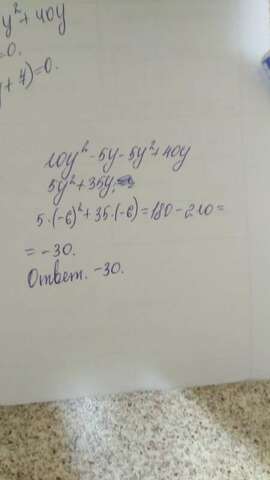 y² + 40y
= 0.
y + 7) = 0.
10y² - 5y - 5y² + 40y
5y² + 35y
5·(-6)² + 35·(-6) = 180 - 210 =
= -30.
Ответ. -30.